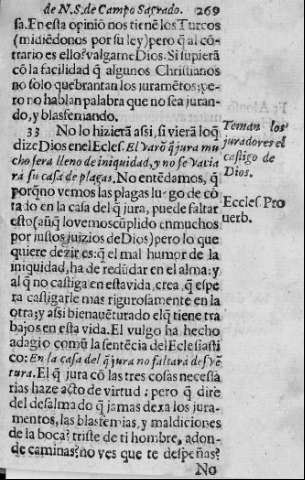 de N.S. de Campo Sagrado. 269
sa. En esta opiniō nos tienē los Turcos
(midiēdonos por su ley) pero q̄ al cō-
trario es ello? valgame Dios. Si supierā
cō la facilidad q̄ algunos Christianos
no solo quebrantan los juramētos; pe-
ro no hablan palabra que no sea juran-
do, y blasfemando.
33 No lo hizierā assi, si vierā loq̄
dize Dios en el Ecles. El varō q̄ jura mu
cho sera lleno de iniquidad, y no se vazia
rá su casa de plagas. No entēdamos, q̄
porq̄no vemos las plagas luego de cō
tado en la casa del q̄ jura, puede faltar
esto (aūq̄ lo vemos cūplido en muchos
por justos juizios de Dios) pero lo que
quiere dezir es: q̄ el mal humor de la
iniquidad, ha de redūdar en el alma: y
al q̄ no castiga en esta vida, crea, q̄ espe
ra castigarle mas rigurosamente en la
otra; y assi bienauēturado el q̄ tiene tra
bajos en esta vida. El vulgo ha hecho
adagio comū la sentēcia del Eclesiasti
co: En la casa del q̄ jura no faltará desvē
tura. El q̄ jura cō las tres cosas necessa
rias haze acto de virtud; pero q̄ dire
del desalmado q̄ jamas dexa los jura-
mentos, las blasfemias, y maldiciones
de la boca? triste de ti hombre, adon-
de caminas? no ves que te despeñas?
No
Teman los
juradores el
castigo de
Dios.
Eccles. Pro
uerb.